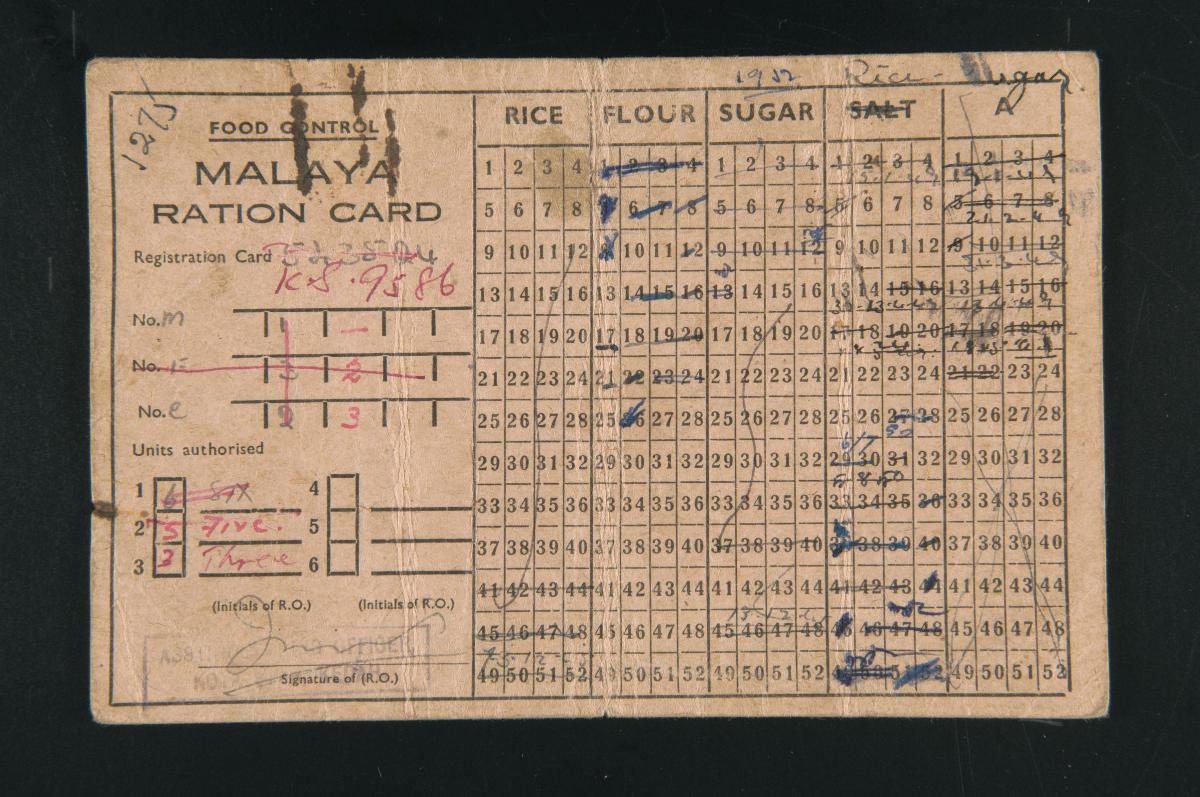 1275
1952 Rice - Sugar
FOOD CONTROL
MALAYA
RATION CARD
Registration Card
K.S. 9586
No. m 1 —
No. 2
No. e 2 3
Units authorised
1 6 SIX 4
2 5 Five. 5
3 3 Three 6
(Initials of R.O.) (Initials of R.O.)
Signature of (R.O.)
RICE FLOUR SUGAR SALT A
1 2 3 4 1 2 3 4 1 2 3 4 1 2 3 4 1 2 3 4
5 6 7 8 6 7 8 5 6 7 8 5 6 7 8 5 6 7 8
9 10 11 12 10 11 12 9 10 11 12 9 10 11 12 9 10 11 12
13 14 15 16 13 14 15 16 13 14 15 16 13 14 15 16 13 14 15 16
17 18 19 20 17 18 19 20 17 18 19 20 17 18 19 20 17 18 19 20
21 22 23 24 21 22 23 24 21 22 23 24 21 22 23 24 21 22 23 24
25 26 27 28 25 26 27 28 25 26 27 28 25 26 27 28 25 26 27 28
29 30 31 32 29 30 31 32 29 30 31 32 29 30 31 32 29 30 31 32
33 34 35 36 33 34 35 36 33 34 35 36 33 34 35 36 33 34 35 36
37 38 39 40 37 38 39 40 37 38 39 40 38 39 40 37 38 39 40
41 42 43 44 41 42 43 44 41 42 43 44 41 42 43 44 41 42 43 44
45 46 47 48 45 46 47 48 45 46 47 48 46 47 48 45 46 47 48
49 50 51 52 49 50 51 52 49 50 51 52 51 52 49 50 51 52